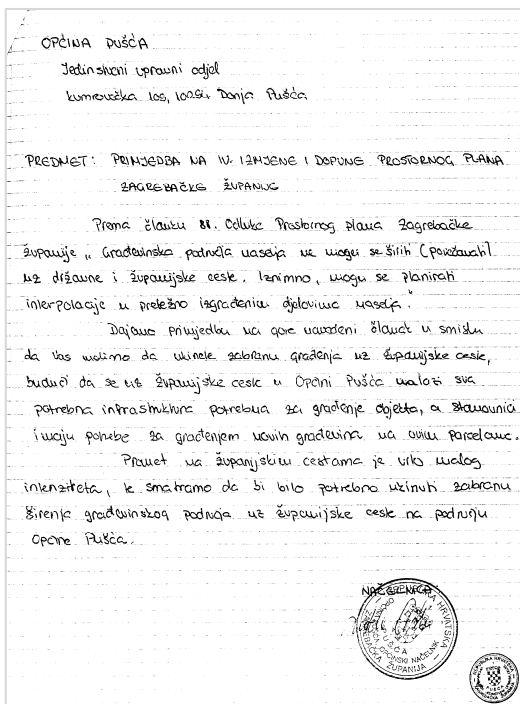 OPĆINA PUŠĆA
Jedinstveni upravni odjel
Kumrovečka 105, 10294 Donja Pušća
PREDMET: PRIMJEDBA NA IV. IZMJENE I DOPUNE PROSTORNOG PLANA
ZAGREBAČKE ŽUPANIJE
Prema članku 88. Odluke Prostornog plana Zagrebačke
županije „Građevinska područja naselja ne mogu se širiti (povećavati)
uz državne i županijske ceste. Iznimno, mogu se planirati
interpolacije u pretežno izgrađenim dijelovima naselja."
Dajemo primjedbu na gore navedeni članak u smislu
da Vas molimo da ukinete zabranu građenja uz županijske ceste,
budući da se uz županijske ceste u Općini Pušća nalazi sva
potrebna infrastruktura potrebna za građenje objekta, a stanovnici
imaju potrebe za građenjem novih građevina na ovim parcelama.
Promet na županijskim cestama je vrlo malog
intenziteta, te smatramo da bi bilo potrebno ukinuti zabranu
širenja građevinskog područja uz županijske ceste na području
Općine Pušća.
NAČELNICA
REPUBLIKA HRVATSKA
ZAGREBAČKA ŽUPANIJA
OPĆINA PUŠĆA
OPĆINSKI NAČELNIK
REPUBLIKA HRVATSKA
PUŠĆA